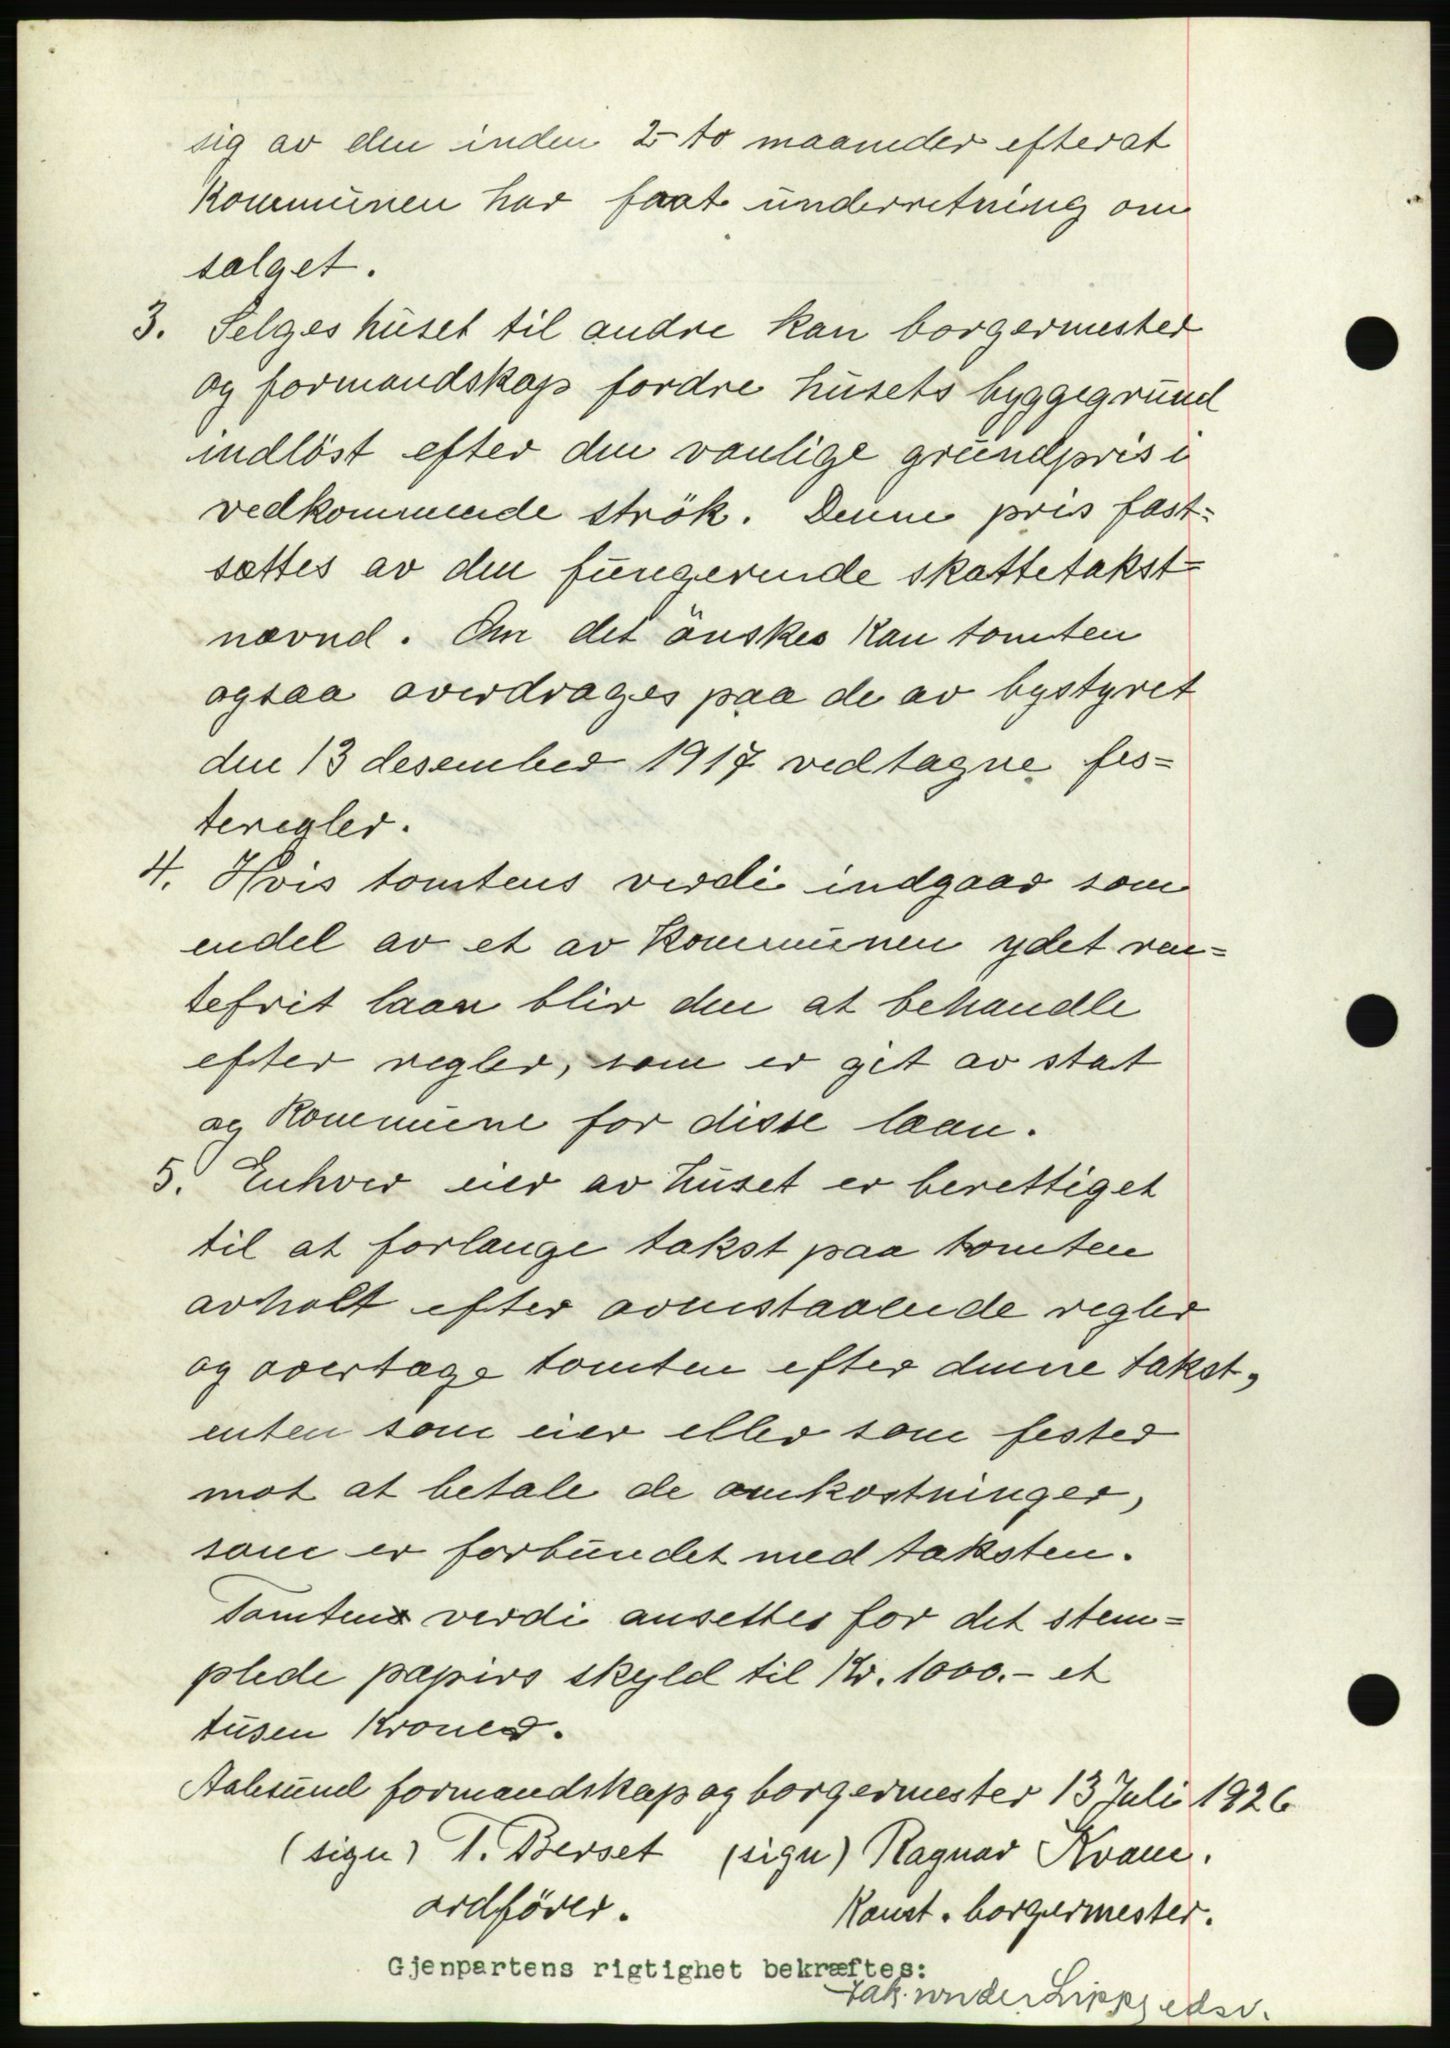 sig av den inden 2- to maaneder efterat
kommunen har faat underretning om
salget.
3. Selges huset til andre kan borgermester
og formandskap fordre husets byggegrund
indlöst efter den vanlige grundpris i
vedkommende strök. Denne pris fast=
sættes av den fungerende skattetakst=
nævnd. Om det önskes kan tomten
ogsaa overdrages paa de av bystyret
den 13 desember 1917 vedtagne fes=
teregler.
4. Hvis tomtens verdi indgaar som
endel av et av kommunen ydet ren=
tefrit laan blir den at behandle
efter regler, som er git av stat
og kommune for disse laan.
5. Enhver eier av huset er berettiget
til at forlange takst paa tomten
avholt efter ovenstaaende regler
og overtage tomten efter denne takst,
enten som eier eller som fester
mot at betale de omkostninger,
som er forbundet med taksten.
Tomtens verdi ansettes for det stem=
plede papirs skyld til Kr. 1000.- et
tusen Kroner.
Aalesund formandskap og borgermester 13 Juli 1926
(sign) T. Berset (sign) Ragnar Kvam.
ordförer. Konst. borgermester.
Gjenpartens rigtighet bekræftes:
edsv.